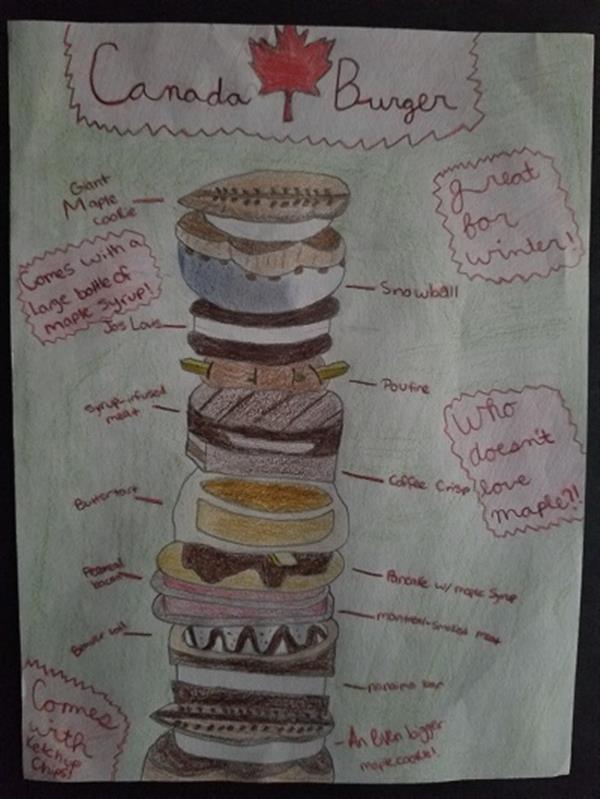 Canada Burger
Giant
Maple
cookie
great
for
winter!
Comes with a
large bottle of
maple syrup!
Snowball
Jos Louis
Poutine
Syrup-infused
meat
Who
doesn't
love
maple?!
Coffee Crisp
Buttertart
Peameal
bacon
Pancake w/ maple syrup
montreal-smoked meat
Beaver tail
nanaimo bar
Comes
with
Ketchup
Chips!
An Even bigger
maple cookie!